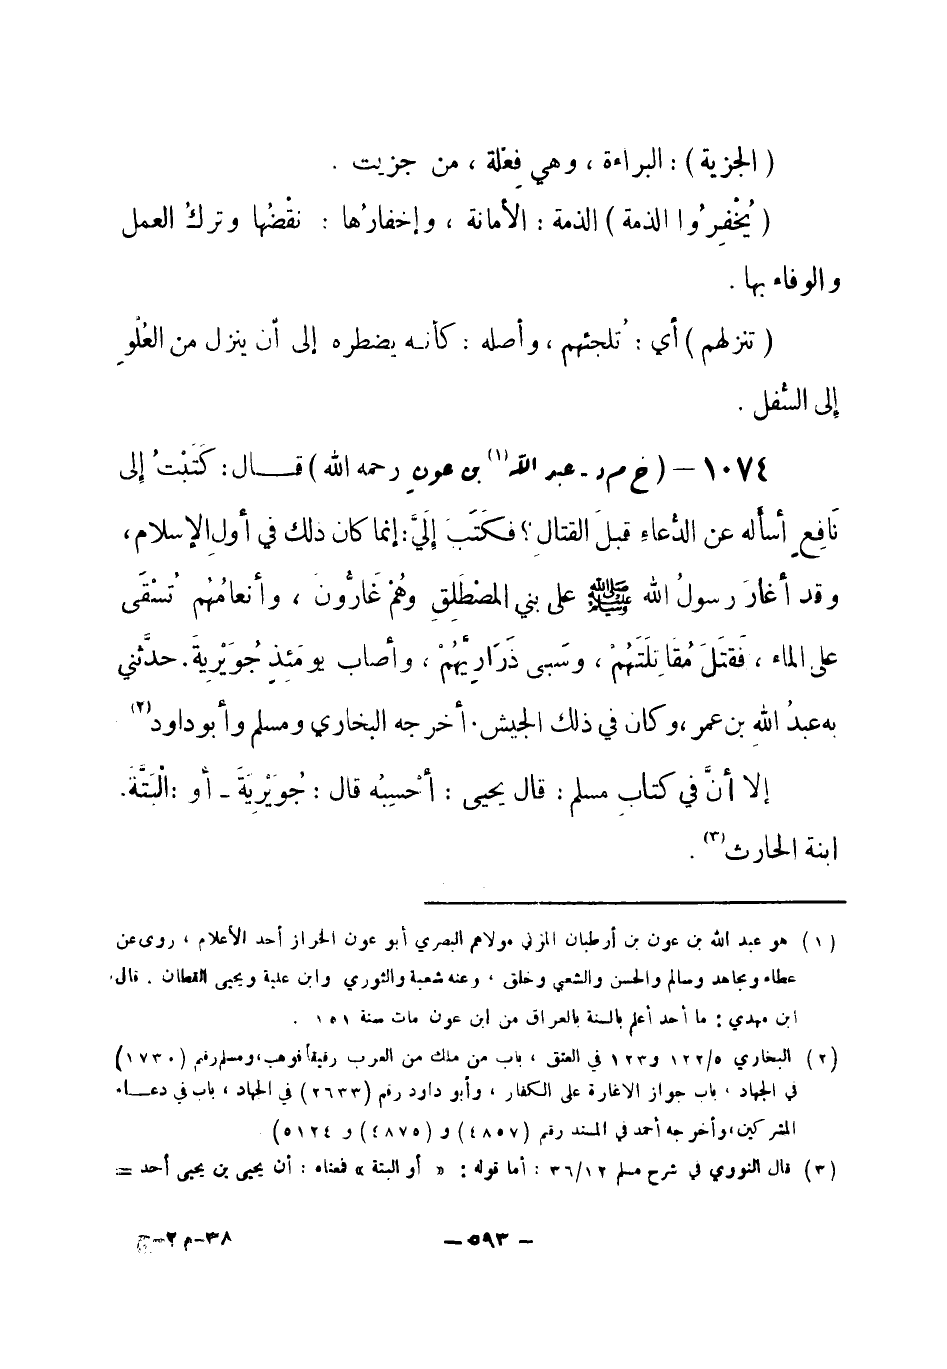 ( الجزية ) : البراءة ، وهي فِعْلة ، من جزيت .
( يُخْفِرُوا الذمة ) الذمة : الأمانة ، وإخفارُها : نقْضُها وتركُ العمل
والوفاء بها .
( تنزلهم ) أي : تُلجئهم ، وأصله : كأنه يضطره إلى أن ينزل من العُلْوِ
إلى السُّفل .
١٠٧٤ – ( خ م د - عبد اللّه (١) بن عونٍ رحمه الله ) قال : كَتَبْتُ إلى
نَافِعٍ أسأله عن الدُّعاءِ قبلَ القتالِ ؟ فكَتَبَ إِلَيَّ : إنما كان ذلك في أولِ الإسلام ،
وقد أغارَ رسولُ الله ﷺ على بني المصْطَلِقِ وهُمْ غَارُّونَ ، وأنعامُهُم تُسْقَى
على الماء ، فَقتَلَ مُقاتِلَتَهُمْ ، وسَبى ذَرَارِيَّهُمْ ، وأصاب يومَئِذٍ جُويْرِيةَ . حدَّثني
به عبدُ اللهِ بن عمر ، وكان في ذلك الجيش . أخرجه البخاري ومسلم وأبو داود (٢)
إلا أنَّ في كتابِ مسلم : قال يحيى : أحْسِبُه قال : جُوَيْرِيَةَ - أو : الْبَتَّةَ .
ابنة الحارث (٣) .
(١) هو عبد الله بن عون بن أرطبان المزني مولاهم البصري أبو عون الخراز أحد الأعلام ، روى عن
عطاء ومجاهد وسالم والحسن والشعبي وخلق ، وعنه شعبة والثوري وابن علية ويحيى القطان . قال
ابن مهدي : ما أحد أعلم بالسنة بالعراق من ابن عون مات سنة ١٥١ .
(٢) البخاري ١٢٢/٥ و١٢٣ في العتق ، باب من ملك من العرب رقيقاً فوهب ، ومسلم رقم (١٧٣٠)
في الجهاد ، باب جواز الاغارة على الكفار ، وأبو داود رقم (٢٦٣٣) في الجهاد ، باب في دعاء
المشركين ، وأخرجه أحمد في المسند رقم (٤٨٥٧) و (٤٨٧٥) و ٥١٢٤)
(٣) قال النووي في شرح مسلم ٣٦/١٢ : أما قوله : « أو البتة » فمعناه : أن يحيى بن يحيى أحد =
– ٥٩٣ –
٣٨-م ٢-ج